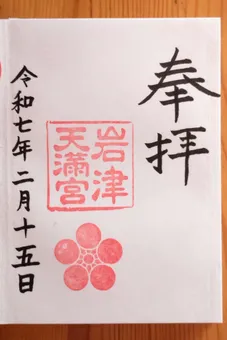 奉拝
岩津
天満宮
令和七年二月十五日